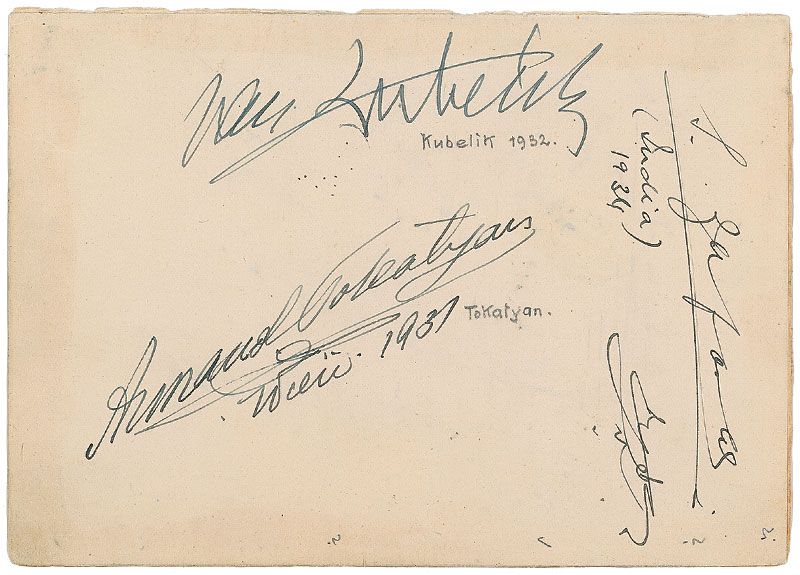 Jan Kubelik
Kubelik 1932.
Armand Tokatyan
Tokatyan.
Wien. 1931
S.
(India)
1934